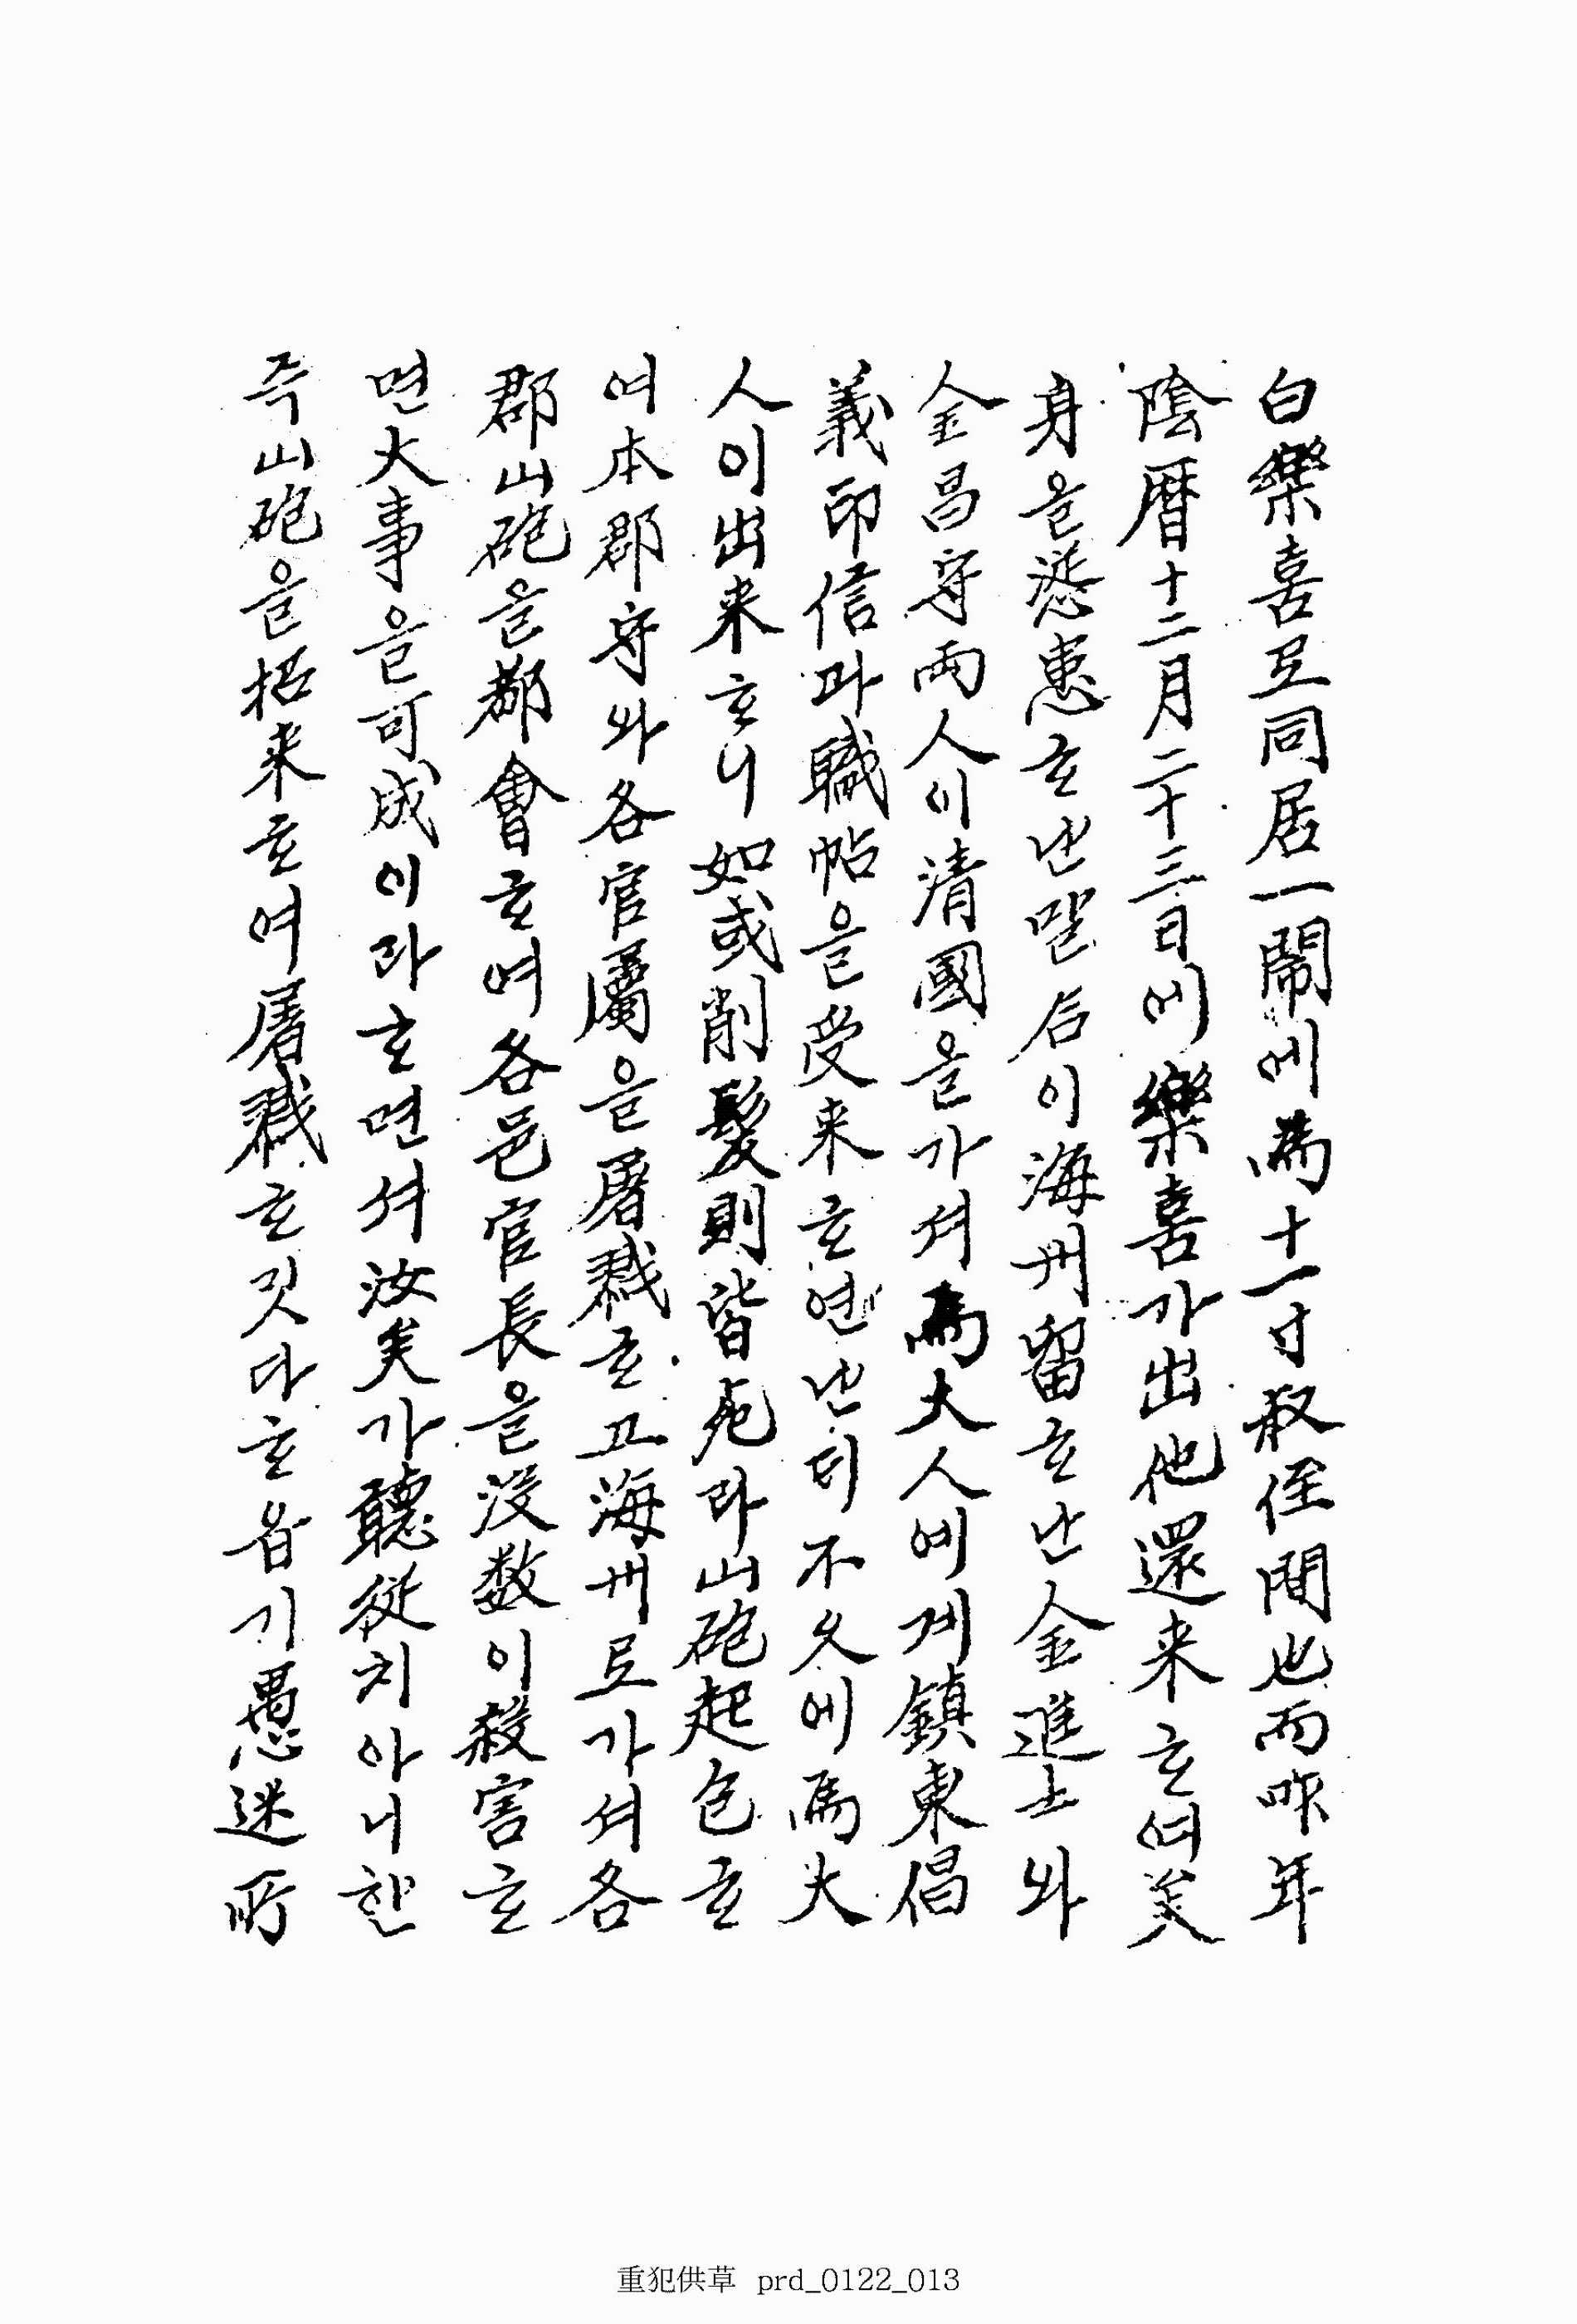 白樂喜로同居一鬧에爲十一寸叔侄間也而昨年
陰曆十二月二十三日에樂喜가出他還来ᄒᆞ여矣
身을慫慂ᄒᆞ난말合이海州留ᄒᆞ난金進士와
金昌守両人이清國을가셔馬大人에게鎮東倡
義印信과職帖을受来ᄒᆞ연난ᄃᆡ不久에馬大
人이出来ᄒᆞ니如或削髮則皆死라山砲起包ᄒᆞ
여本郡守와各官屬을屠戮ᄒᆞ고海州로가셔各
郡山砲을都會ᄒᆞ여各邑官長을沒数이殺害ᄒᆞ
면大事을可成이라ᄒᆞ면셔汝矣가聽従치아니ᄒᆞᆫ
즉山砲을招来ᄒᆞ여屠戮ᄒᆞ깃다ᄒᆞ옵기愚迷所
重犯供草 prd_0122_013